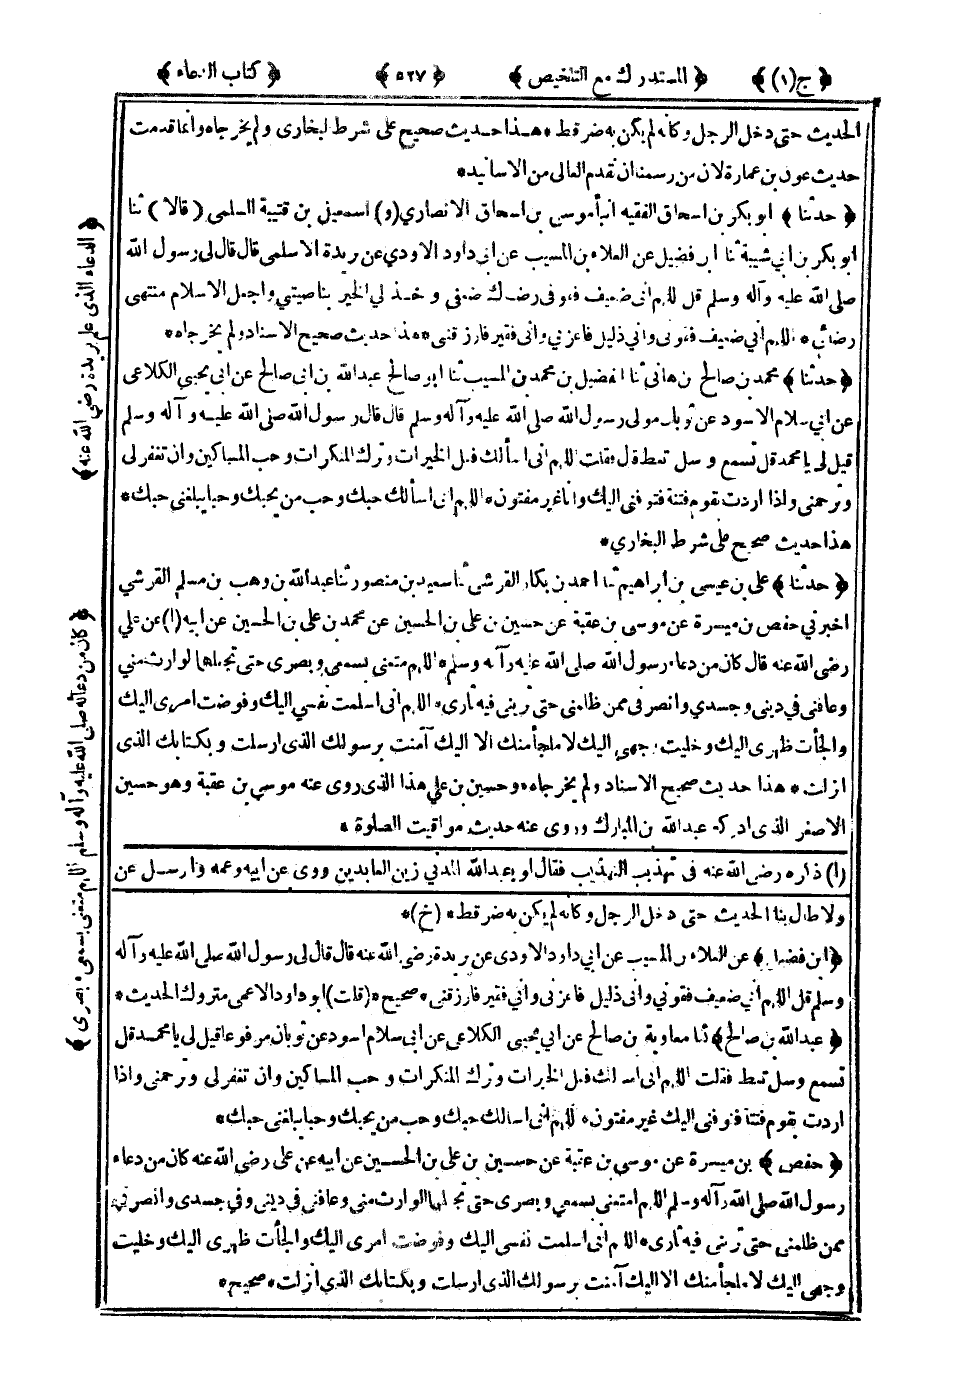 ﴿ ج(١) ﴾ ﴿ المستدرك مع التلخيص ﴾ ﴿ ٥٢٧ ﴾ ﴿ كتاب الدعاء ﴾
الحديث حتى دخل الرجل وكأنه لم يكن به ضر قط * هذا حديث صحيح على شرط البخارى ولم يخرجاه وانما قدمت
حديث عون بن عمارة لان من رسمنا ان نقدم العالى من الاسانيد *
﴿ حدثنا ﴾ ابو بكر بن اسحاق الفقيه انبأ موسى بن اسحاق الانصارى (و) اسمعيل بن قتيبة السلمى ( قالا ) ثنا
ابو بكر بن ابي شيبة ثنا ابن فضيل عن العلاء بن المسيب عن ابى داود الاودي عن بريدة الاسلمى قال قال لى رسول الله
صلى الله عليه وآله وسلم قل اللهم انى ضعيف فقوفى رضاك ضعفى وخذ لي الخير بناصيتي واجعل الاسلام منتهى
رضائى * اللهم اني ضعيف فقونى واني ذليل فاعزني وانى فقير فارزقنى * هذا حديث صحيح الاسناد ولم يخرجاه *
﴿ حدثنا ﴾ محمد بن صالح بن هانى ثنا الفضيل بن محمد بن المسيب ثنا ابو صالح عبدالله بن ابى صالح عن ابى يحيى الكلاعى
عن ابي سلام الاسود عن ثوبان مولى رسول الله صلى الله عليه وآله وسلم قال قال رسول الله صلى الله عليه وآله وسلم
قيل لى يا محمد قل تسمع وسل تعط قال فقلت اللهم انى اسألك فعل الخيرات وترك المنكرات وحب المساكين وان تغفر لى
وترحمنى واذا اردت بقوم فتنة فتوفنى اليك وانا غير مفتون * اللهم انى اسألك حبك وحب من يحبك وحبا يبلغنى حبك *
هذا حديث صحيح على شرط البخاري *
﴿ حدثنا ﴾ على بن عيسى بن ابراهيم ثنا احمد بن بكار القرشي ثنا سعيد بن منصور ثنا عبدالله بن وهب بن مسلم القرشي
اخبرني حفص بن ميسرة عن موسى بن عقبة عن حسين بن على بن الحسين عن محمد بن على بن الحسين عن ابيه (١) عن علي
رضى الله عنه قال كان من دعاء رسول الله صلى الله عليه وآله وسلم * اللهم متعنى بسمعى وبصرى حتى تجعلهما الوارث منى
وعافنى في دينى وجسدي وانصرنى ممن ظلمنى حتى ترينى فيه ثارى * اللهم انى اسلمت نفسي اليك وفوضت امرى اليك
والجأت ظهرى اليك وخليت وجهى اليك لا ملجأ منك الا اليك آمنت برسولك الذى ارسلت وبكتابك الذى
انزلت * هذا حديث صحيح الاسناد ولم يخرجاه * وحسين بن علي هذا الذى روى عنه موسى بن عقبة وهو حسين
الاصغر الذى ادركه عبدالله بن المبارك وروى عنه حديث مواقيت الصلوة *
(١) ذكره رضى الله عنه فى تهذيب التهذيب فقال ابو عبدالله المدني زين العابدين روى عن ابيه وعمه وارسل عن
ولا طال بنا الحديث حتى دخل الرجل وكانه لم يكن به ضر قط * (خ) *
﴿ ابن فضيل ﴾ عن العلاء بن المسيب عن ابي داود الاودى عن بريدة رضى الله عنه قال قال لى رسول الله صلى الله عليه وآله
وسلم قل اللهم اني ضعيف فقوني وانى ذليل فاعزنى واني فقير فارزقنى * صحيح * (قلت) ابو داود الاعمى متروك الحديث *
﴿ عبدالله بن صالح ﴾ ثنا معاوية بن صالح عن ابي يحيى الكلاعى عن ابى سلام الاسود عن ثوبان مرفوعا قيل لى يا محمد قل
تسمع وسل تعط فقلت اللهم انى اسألك فعل الخيرات وترك المنكرات وحب المساكين وان تغفر لى وترحمنى واذا
اردت بقوم فتنة فتوفنى اليك غير مفتون * اللهم انى اسألك حبك وحب من يحبك وحبا يبلغنى حبك *
﴿ حفص ﴾ بن ميسرة عن موسى بن عقبة عن حسين بن على بن الحسين عن ابيه عن على رضى الله عنه كان من دعاء
رسول الله صلى الله وآله وسلم اللهم امتعنى بسمعي وبصرى حتى تجعلهما الوارث منى وعافنى في دينى وفي جسدى وانصرني
ممن ظلمنى حتى ترينى فيه ثارى * اللهم انى اسلمت نفسى اليك وفوضت امرى اليك والجأت ظهرى اليك وخليت
وجهى اليك لا ملجأ منك الا اليك آمنت برسولك الذى ارسلت وبكتابك الذى انزلت * صحيح *
﴿ الدعاء الذى علم بريدة رضى الله عنه ﴾
﴿ كان من دعائه صلى الله عليه وآله وسلم اللهم متعنى بسمعى وبصرى ﴾